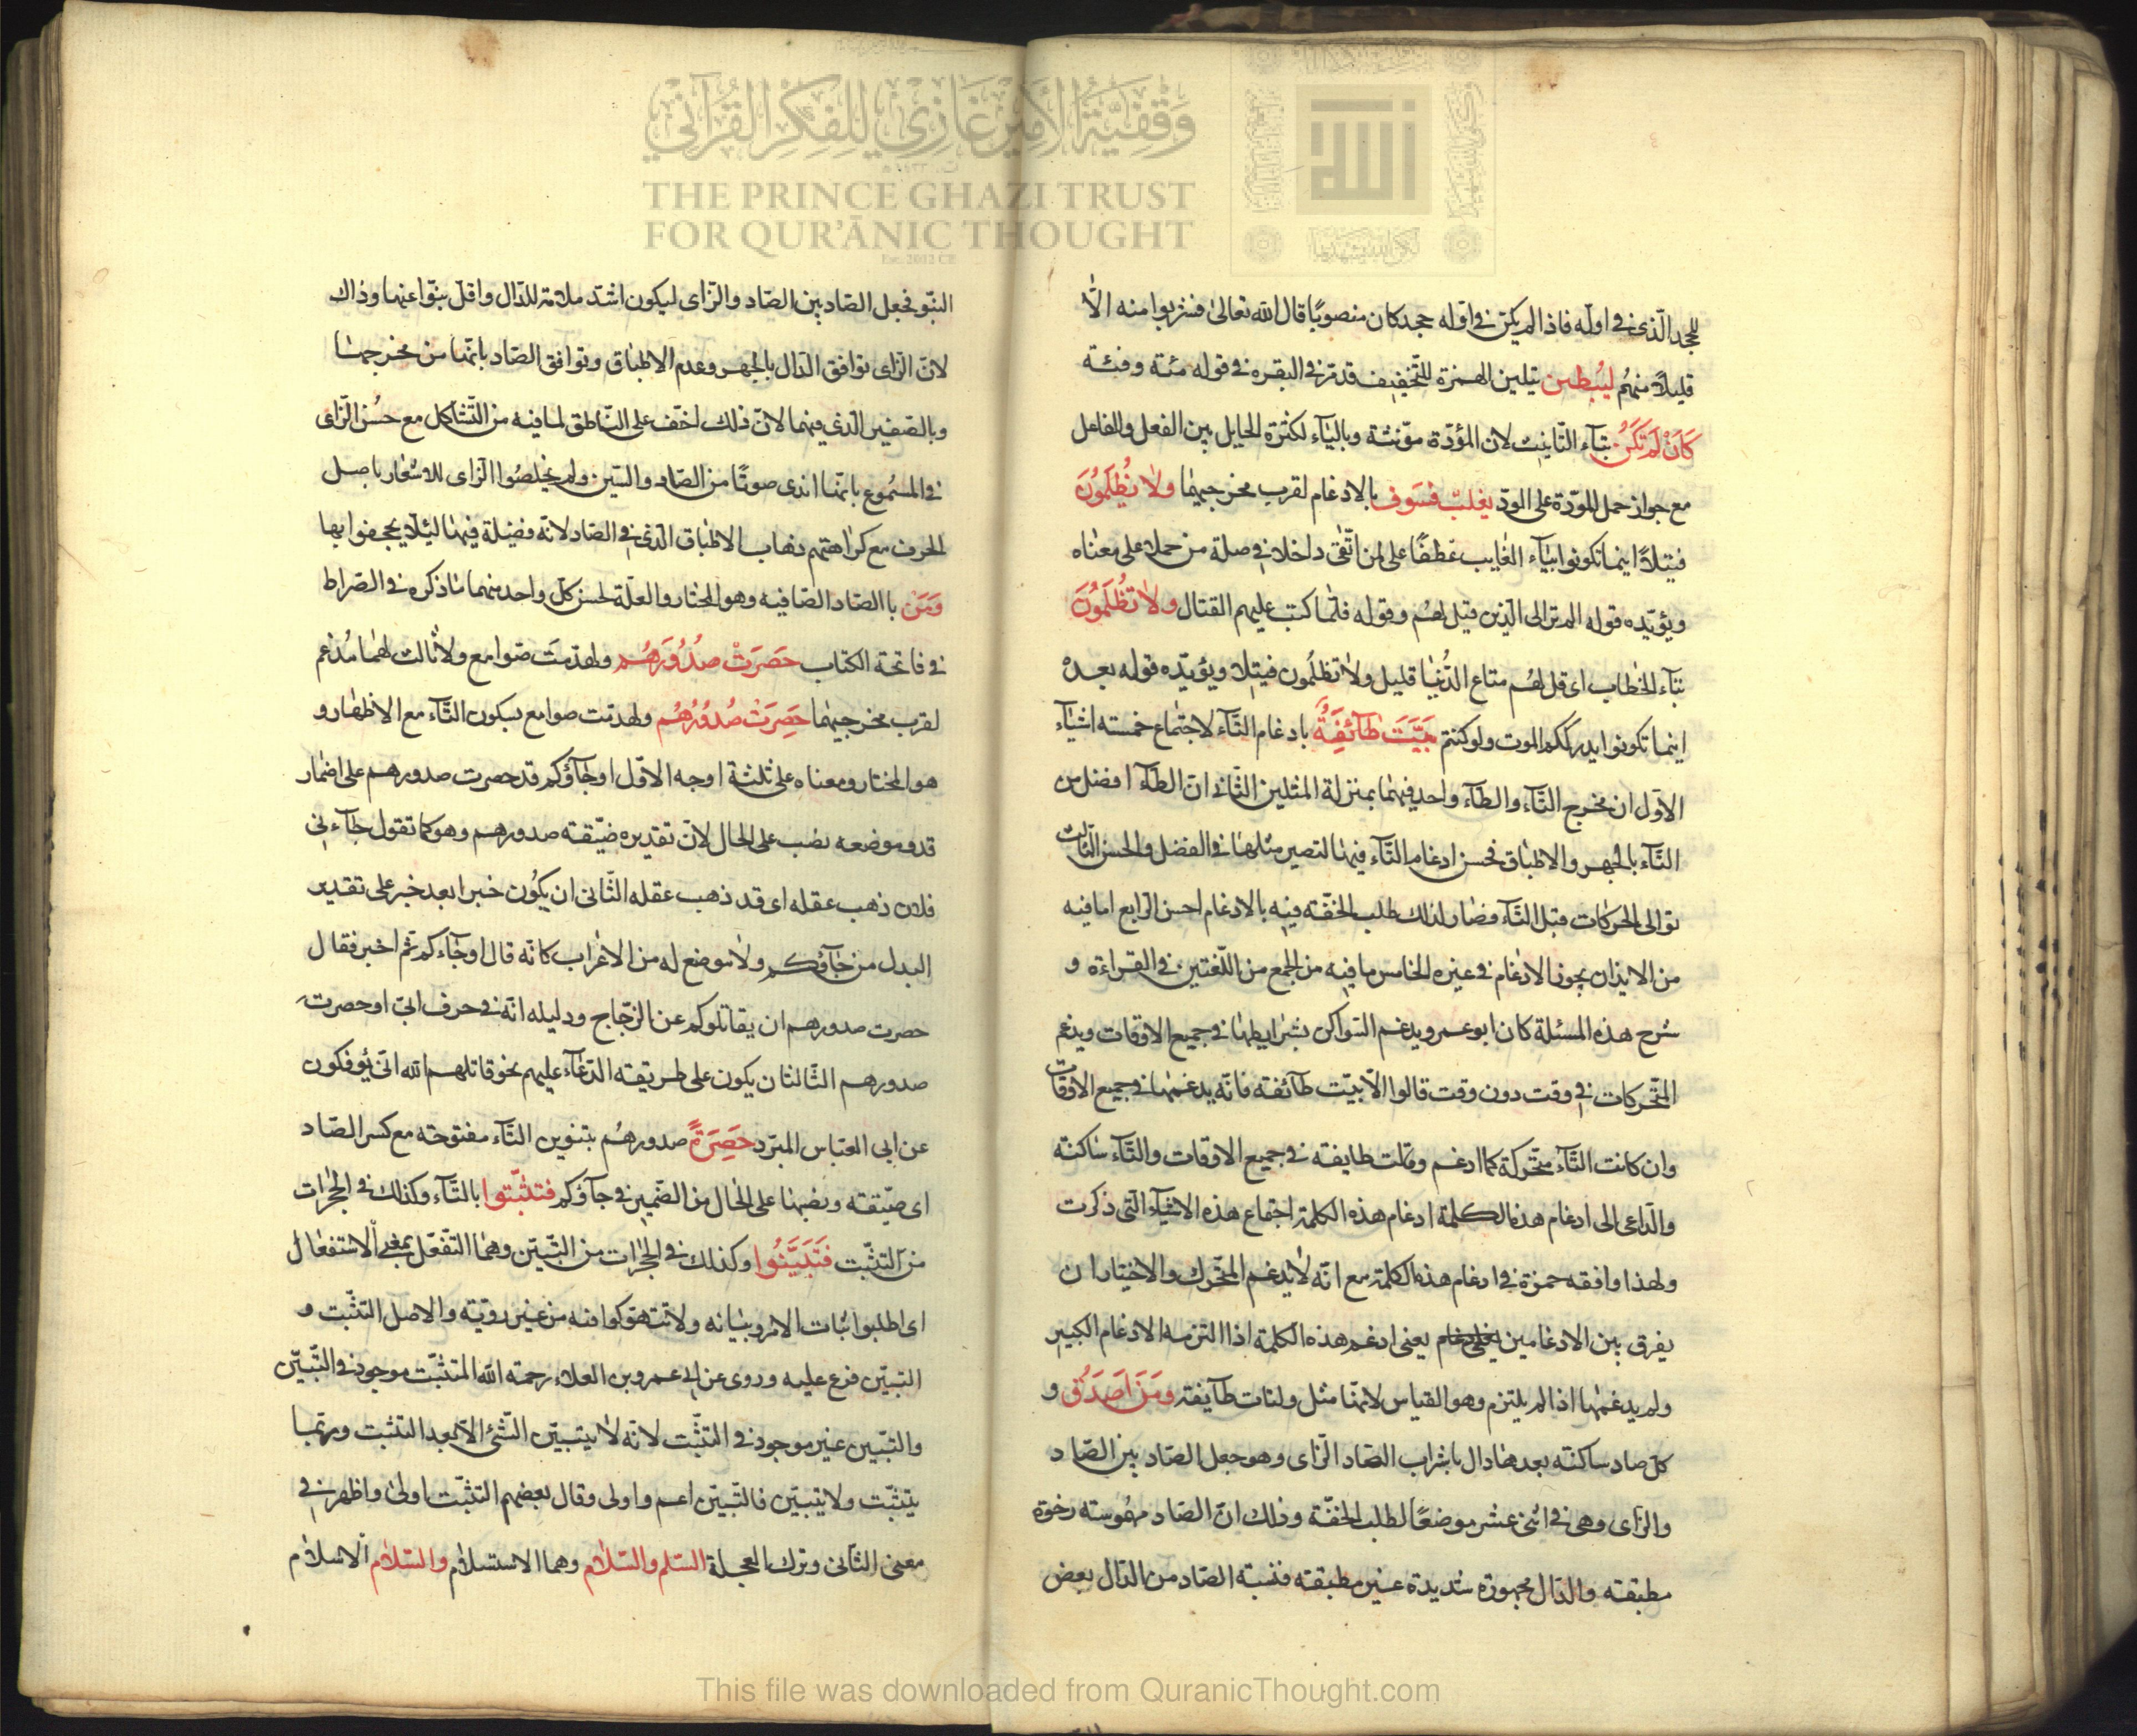 وقفية الأمير غازي للفكر القرآني
THE PRINCE GHAZI TRUST
FOR QUR'ĀNIC THOUGHT
Est. 2012 CE
الله
للجحد الذى فى اوله فاذا لم يكن فى اوله جحد كان منصوبًا قال الله تعالىٰ فشربوا منه الّا
قليلاً منهُم ليُبطين بتليين الهمزة للتّخفيف قد مرّ فى البقره فى قوله مئة وفئة
كَأَنْ لَم تَكُن بتآء التّانيث لان المؤدّة مؤنثة وباليٰاء لكثرة الحايل بين الفعل والفاعل
مع جواز حمل المودّة على الودّ يغلبْ فسَوف بالادغام لقرب مخرجيهمٰا ولا تُظلَمُونَ
فتيلاً اينما تكونوا بيٰآء الغٰايب عَطفًا على لمن اتّقىٰ داخلا فى صلة من حملا على معنٰاه
ويؤيّده قوله الم تر الى الذين قيل لهُم وقوله فلمّا كتب عليهم القتال ولا تُظلَمُونَ
بتآء الخٰطاب اى قل لهُم متاع الدُّنيٰا قليل ولا تظلمُون فتيلا ويؤيّده قوله بعدهْ
اينما تكونوا يدرككم الموت ولو كنتم بَيَّتَ طٰآئفةٌ بادغام التّآء لاجتمٰاع خمسته اشيٰآء
الاوّل ان مخرج التّآء والطآء واحد فهمٰا بمنزلة المثلين الثّانى انّ الطآء افضل من
التّآء بالجهر والاطبٰاق فحسن ادغام التّآء فيهٰا لتصير مثلهٰا فى الفضل والحسن الثّالث
توالى الحركات قبل التّآء فصٰار لذلك طلب الخفّه فيه بالادغام احسن الرّابع اما فيه
من الايذان بجواز الادغٰام فى غيره الخامس ما فيه من الجمع من اللّغتين فى القراءة و
شرح هذه المسئلة كان ابو عمرو يدغم السّواكن بشرايطهٰا فى جميع الاوقات ويدغم
المتّحركات فى وقت دون وقت قالوا الّا بيّت طآئفة فانّه يدغمهٰا فى جميع الاوقات
وان كانت التّآء متّحركة كما ادغم وقالت طايفه فى جميع الاوقات والتّآء سٰاكنة
والدّاعى الى ادغام هذه الكلمة ادغام هذه الكلمة اجتماع هذه الاشيآء التى ذكرت
ولهذا وافقه حمزة فى ادغام هذه الكلمة مع انّه لا يُدغم المتّحرك والاختيار ان
يفرق بين الادغامين يعنى ادغم هذه الكلمة اذا التزمه الادغام الكبير
ولم يدغمهٰا اذا لم يلتزم وهو القياس لانهٰا مثل ولتات طآيفة ومَنَ اَصدَقُ و
كلّ صاد ساكنة بعدهٰا دال باشراب الصّاد الزّاى وهو جعل الصّاد بين الصّاد
والزّاى وهى فى اثنى عشر موضعًا لطلب الخفّة وذلك انّ الصّاد مهمُوسته رخوة
مطبقته والدّال مجهورة شديدة غير مطبقته فنسبة الصّاد من الدّال بعض
النبّو فجعل الصّاد بين الصّاد والزّاى ليكون اشدّ ملائمة للدّال واقلّ نبوّا عنها وذاك
لانّ الزّاى توافق الدّال بالجهر وعدم الاطبٰاق وتوافق الصّاد بانّها من مخرجهٰا
وبالصّفير الذى فيهما لانّ ذلك اخفّ على النّاطق لما فيه من التّشاكل مع حُسن الزّاى
فى المسمُوع بانّها اندى صوتًا من الصّاد والسّين ولم يخلصُوا الزّاى للاشعٰار باصل
الحرف مع كراهتهم ذهاب الاطبٰاق الذى فى الصّاد لانّه فضيلة فيهٰا ليئلّا يجحفوا بها
وَمَن باالصّاد الصّافيه وهو المختٰار والعلّة لحسن كلّ واحد منهما مٰا ذكره فى الصّراط
فى فاتحة الكتاب حَصَرَتْ صدُورَهُم ولهدّمتَ صّوامع ولا ثالث لهُمٰا مُدغم
لقرب مخرجيهمٰا حَصِرَتْ صُدُورُهُم ولهدمت صوامع بسكون التّآء مع الاظهٰار و
هو المختار ومعناه على ثلثة اوجه الاوّل اوجٰآؤكم قد حصرت صدورهم على اضمار
قد وموضعه نصب على الحال لانّ تقديره ضيّقته صدورهم وهو كما تقول جٰآءنى
فلان ذهب عقله اى قد ذهب عقله الثّانى ان يكُون خبرا بعد خبر على تقدير
البدل من جٰآؤكم ولا موضع له من الاعٰراب كانّه قال اوجٰآءكم ثم اخبر فقال
حصرت صدورهم ان يقاتلوكم عن الزجّاج ودليله انّه فى حرف ابىّ اوحصرت
صدورهم الثّالث ان يكون على طريقة الدّعآء عليهم نحو قاتلهم الله انّى يُؤفكون
عن ابى العبّاس المبرّد حَصِرَةً صدورهُم بتنوين التّآء مفتوحته مع كسر الصّاد
اى ضيّقته ونصبهٰا على الحٰال من الضّمير فى جآؤكم فتثبّتوا بالثّآء وكذلك فى الحجرات
من التثبّت فَتَبَيَّنُوا وكذلك فى الحجرات من التبيّن وهما التفعّل بمعنى الاستفعٰال
اى اطلبوا ثبات الامر وبيٰانه ولا تتهوّكوا فيه من غير رويّته والاصل التثبّت و
التبيّن فرع عليه وروى عن ابى عمرو بن العلاء رحمته الله التثبّت موجود فى التّبيّن
والتّبيين غير موجود فى التثبّت لانّه لا يتبيّن الشّئ الّا بعد التثبت وربّما
يتثبّت ولا يتبيّن فالتّبيّن اعم واولى وقال بعضهم التثبّت اولىٰ واظهر فى
معنى التأنى وترك العجلة السّلم والسّلام وهما الاستسلام والسّلام الاسلام
This file was downloaded from QuranicThought.com